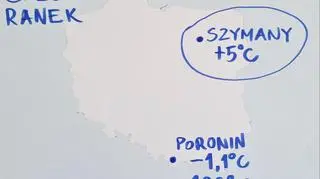 RANEK
SZYMANY
+5°C
PORONIN
-1,1°C